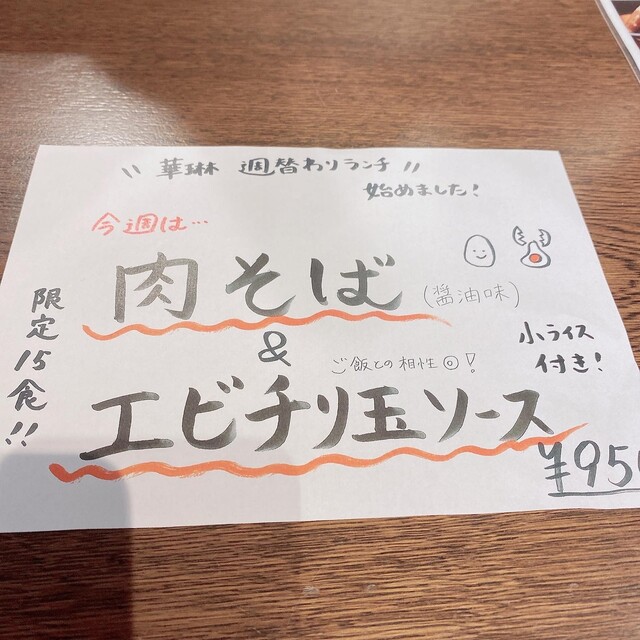 \\ 華琳 週替わりランチ //
始めました!
今週は…
肉そば
(醤油味)
&
ご飯との相性◎!
エビチリ玉ソース
小ライス
付き!
限定15食!!